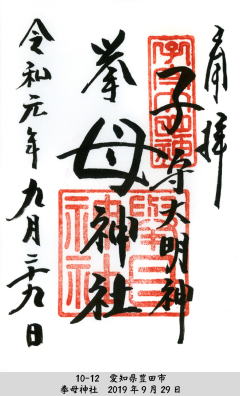 奉拝
子守大明神
挙母神社
令和元年九月二十九日
10-12 愛知県豊田市
挙母神社 2019年9月29日